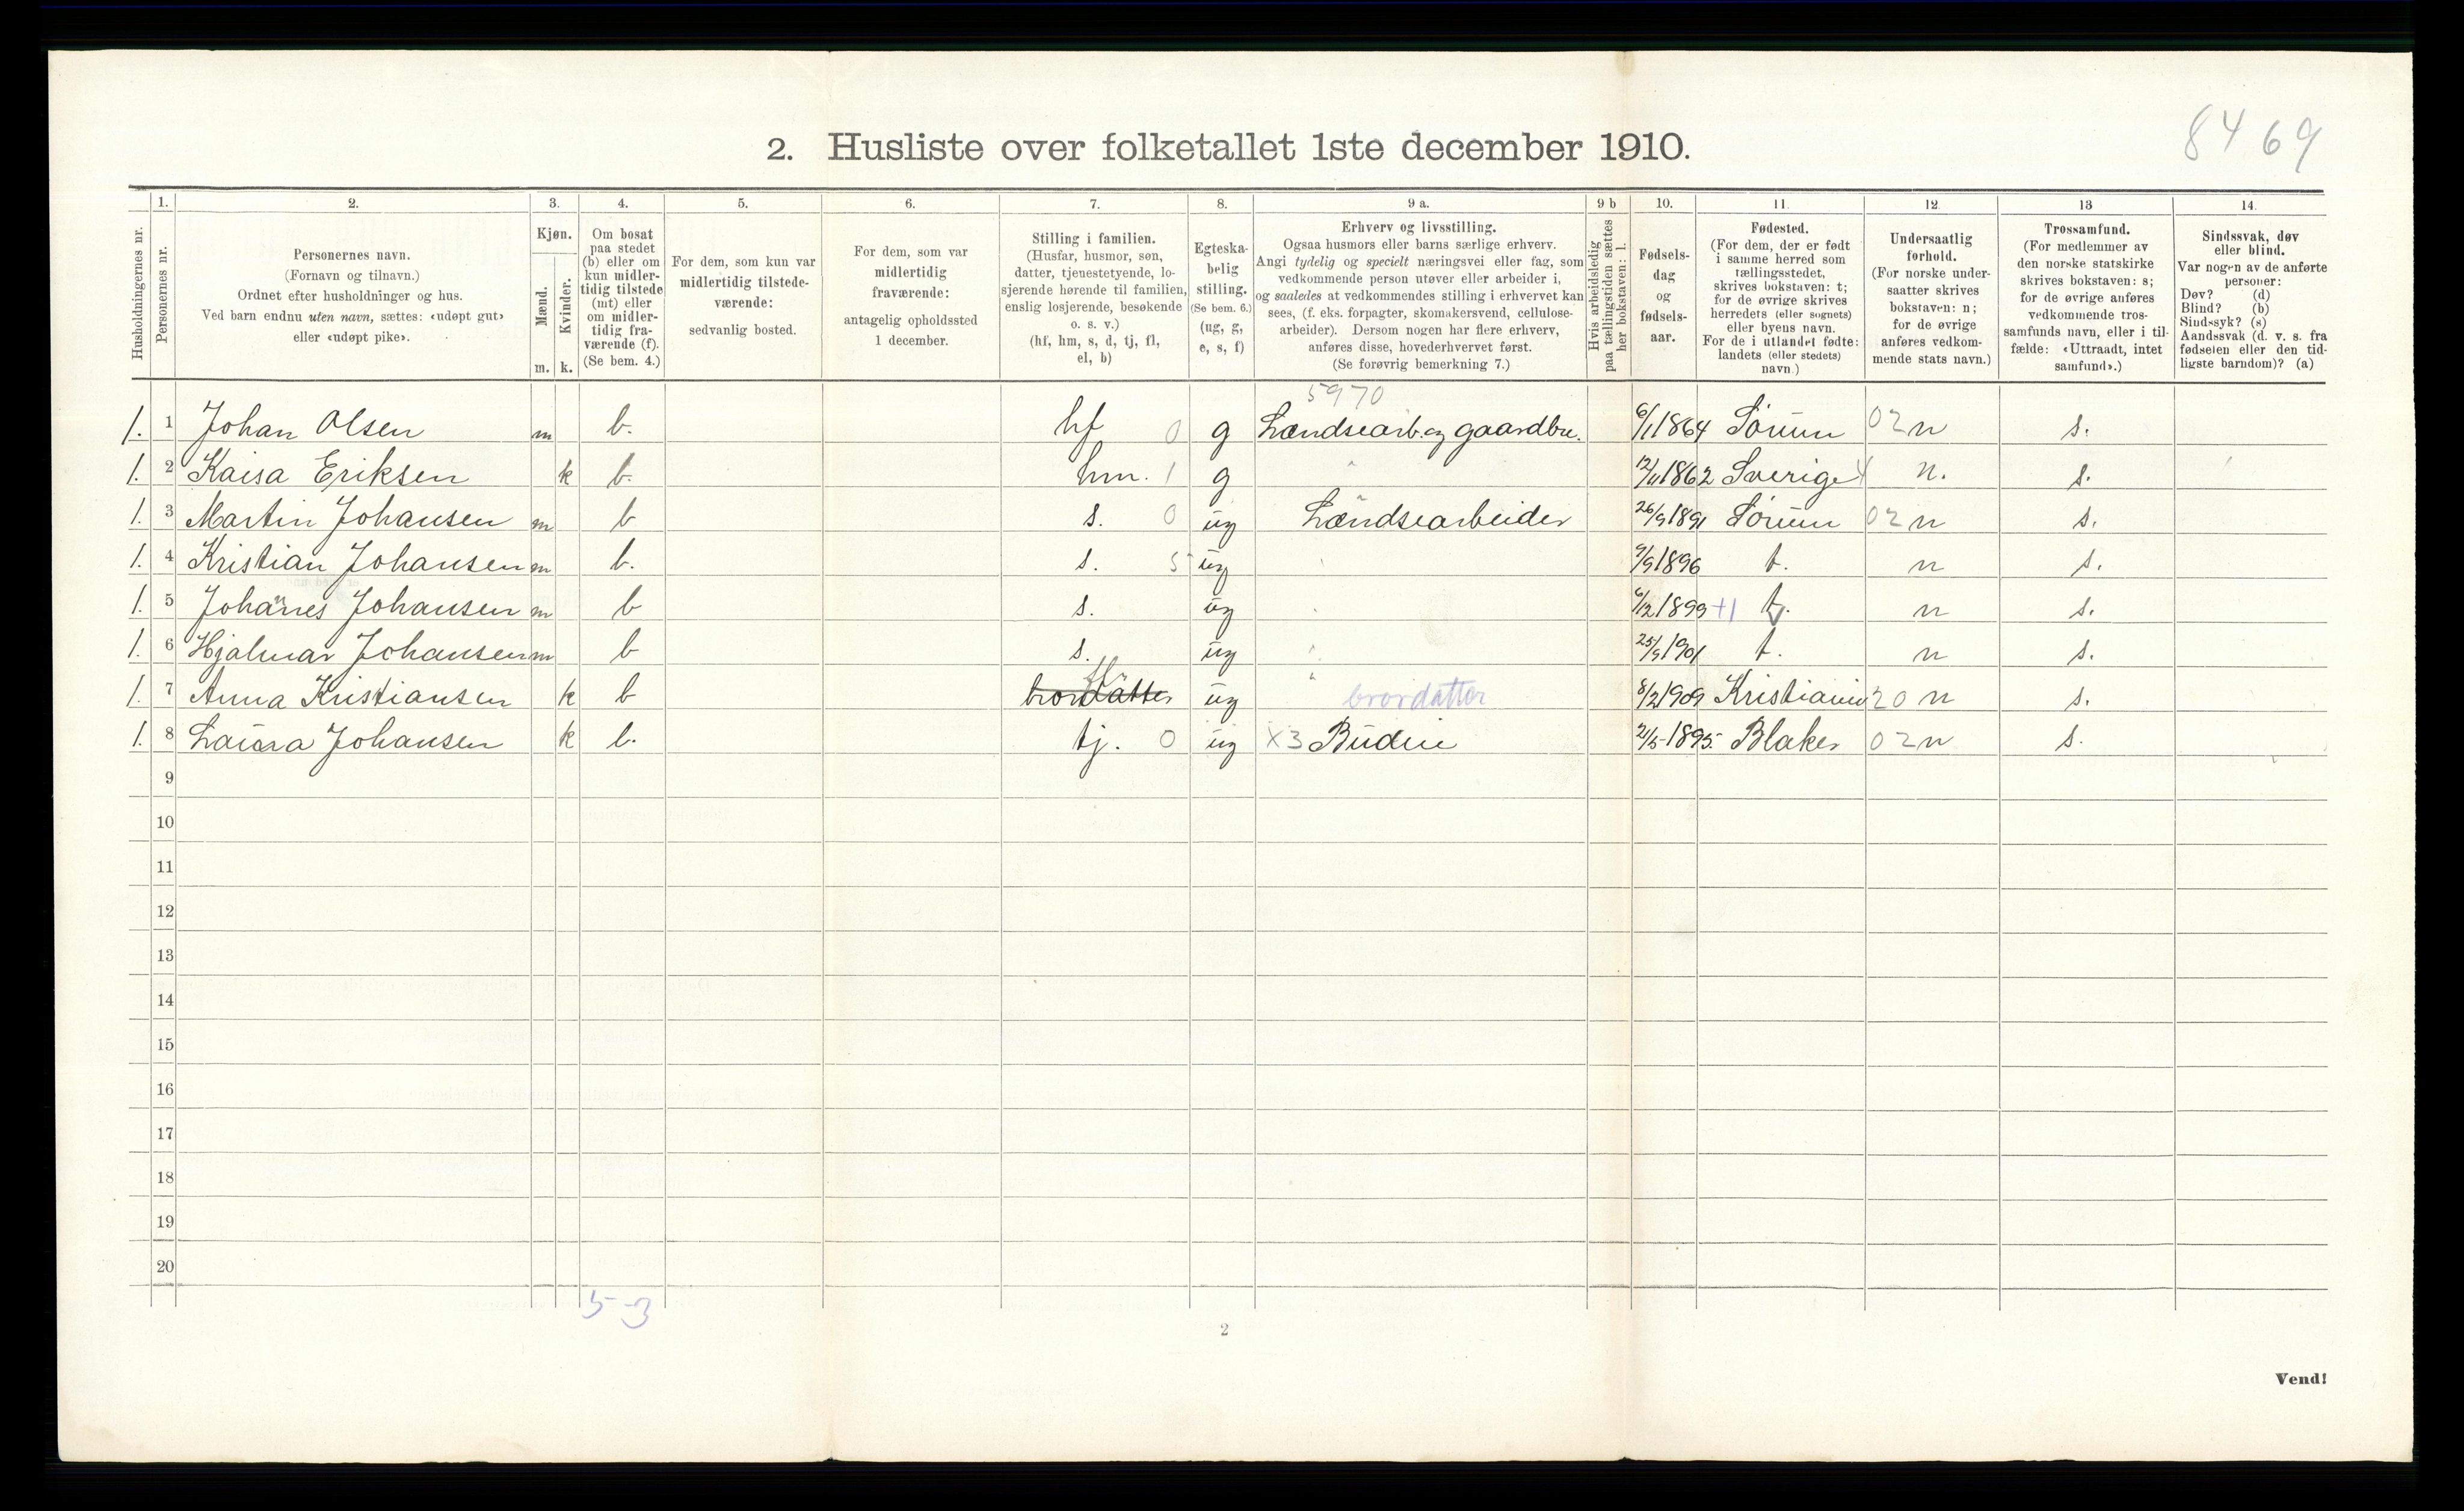 8469
2. Husliste over folketallet 1ste december 1910.
Husholdningernes nr.
1. 2. 3. 4. 5. 6. 7. 8. 9 a. 9 b 10. 11. 12. 13 14.
Personernes nr.
Personernes navn.
(Fornavn og tilnavn.)
Ordnet efter husholdninger og hus.
Ved barn endnu uten navn, sættes: «udøpt gut»
eller «udøpt pike».
Kjøn.
Mænd.
Kvinder.
m. k.
Om bosat
paa stedet
(b) eller om
kun midler-
tidig tilstede
(mt) eller
om midler-
tidig fra-
værende (f).
(Se bem. 4.)
For dem, som kun var
midlertidig tilstede-
værende:
sedvanlig bosted.
For dem, som var
midlertidig
fraværende:
antagelig opholdssted
1 december.
Stilling i familien.
(Husfar, husmor, søn,
datter, tjenestetyende, lo-
sjerende hørende til familien,
enslig losjerende, besøkende
o. s. v.)
(hf, hm, s, d, tj, fl,
el, b)
Egteska-
belig
stilling.
(Se bem. 6.)
(ug, g,
e, s, f)
Erhverv og livsstilling.
Ogsaa husmors eller barns særlige erhverv.
Angi tydelig og specielt næringsvei eller fag, som
vedkommende person utøver eller arbeider i,
og saaledes at vedkommendes stilling i erhvervet kan
sees, (f. eks. forpagter, skomakersvend, cellulose-
arbeider). Dersom nogen har flere erhverv,
anføres disse, hovederhvervet først.
(Se forøvrig bemerkning 7.)
Hvis arbeidsledig
paa tællingstiden sættes
her bokstaven: l.
Fødsels-
dag
og
fødsels-
aar.
Fødested.
(For dem, der er født
i samme herred som
tællingsstedet,
skrives bokstaven: t;
for de øvrige skrives
herredets (eller sognets)
eller byens navn.
For de i utlandet fødte:
landets (eller stedets)
navn.)
Undersaatlig
forhold.
(For norske under-
saatter skrives
bokstaven: n;
for de øvrige
anføres vedkom-
mende stats navn.)
Trossamfund.
(For medlemmer av
den norske statskirke
skrives bokstaven: s;
for de øvrige anføres
vedkommende tros-
samfunds navn, eller i til-
fælde: «Uttraadt, intet
samfund».)
Sindssvak, døv
eller blind.
Var nogen av de anførte
personer:
Døv? (d)
Blind? (b)
Sindssyk? (s)
Aandssvak (d. v. s. fra
fødselen eller den tid-
ligste barndom)? (a)
5970
1. 1 Johan Olsen m b. hf 0 g Lændsearb. og gaardbr. 6/1 1864 Sørum 02 n s.
1. 2 Kaisa Eriksen k b. hm. 1 g " 12/11 1862 Sverige 4 n. s.
1. 3 Martin Johansen m b s. 0 ug Lændsearbeider 26/9 1891 Sørum 02 n s.
1. 4 Kristian Johansen m b. s. 5 ug 9/9 1896 t. n s.
1. 5 Johannes Johansen m b s. ug 6/12 1899 +1 t. n s.
1. 6 Hjalmar Johansen m b s. ug 25/9 1901 t. n s.
1. 7 Anna Kristiansen k b brordatter fl. ug " brordatter 8/2 1909 Kristiania 20 n s.
1. 8 Laura Johansen k b. tj. 0 ug x3 Budeie 21/5 1895. Blaker 02 n s.
9
10
11
12
13
14
15
16
17
18
19
20
5-3
2
Vend!